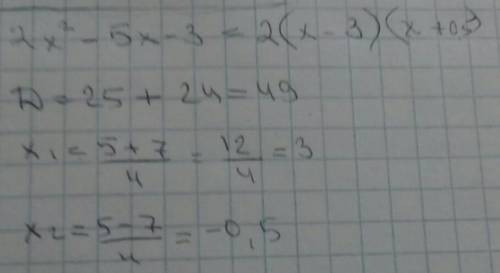 2x² - 5x - 3 = 2(x - 3)(x + 0,5)
D = 25 + 24 = 49
x₁ = (5 + 7)/4 = 12/4 = 3
x₂ = (5 - 7)/4 = -0,5